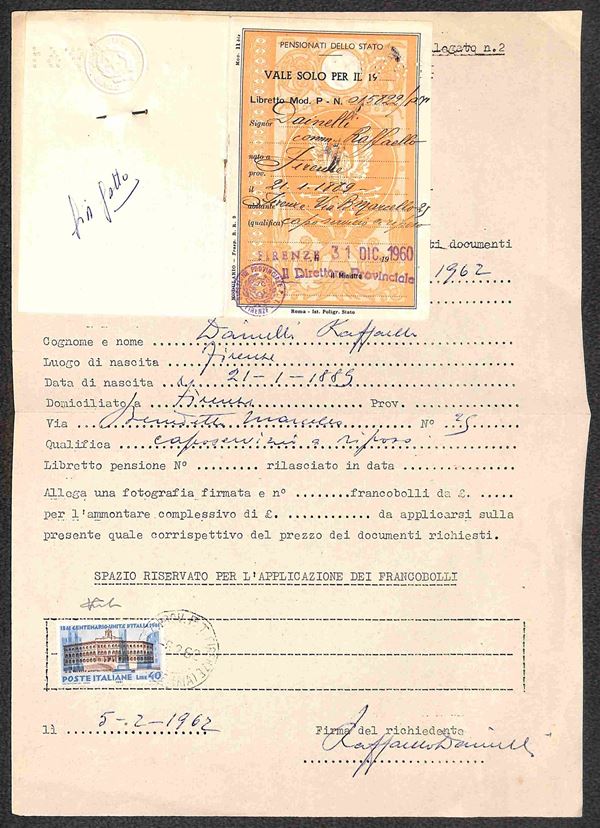 legato n.2
Mod. 22 bis
PENSIONATI DELLO STATO
VALE SOLO PER IL 19
Libretto Mod. P - N. 015822/
Signor Dainelli
comm. Raffaello
nato a Firenze
prov.
il 21-1-1889
abitante Firenze Via B. Marcello 25
(qualifica) caposervizio a riposo
FIRENZE, 31 DIC. 1960
Il Direttore Provinciale
Il Ministro
Roma - Ist. Poligr. Stato
ti documenti
1962
Cognome e nome Dainelli Raffaello
Luogo di nascita Firenze
Data di nascita 21-1-1889
Domiciliato a Firenze Prov.
Via Benedetto Marcello N° 25
Qualifica caposervizio a riposo
Libretto pensione N° ........ rilasciato in data ............
Allega una fotografia firmata e n° ........francobolli da £. .....
per l'ammontare complessivo di £. ............ da applicarsi sulla
presente quale corrispettivo del prezzo dei documenti richiesti.
SPAZIO RISERVATO PER L'APPLICAZIONE DEI FRANCOBOLLI
1861 CENTENARIO UNITÀ D'ITALIA 1961
POSTE ITALIANE LIRE 40
lì 5-2-1962
Firma del richiedente
Raffaello Dainelli